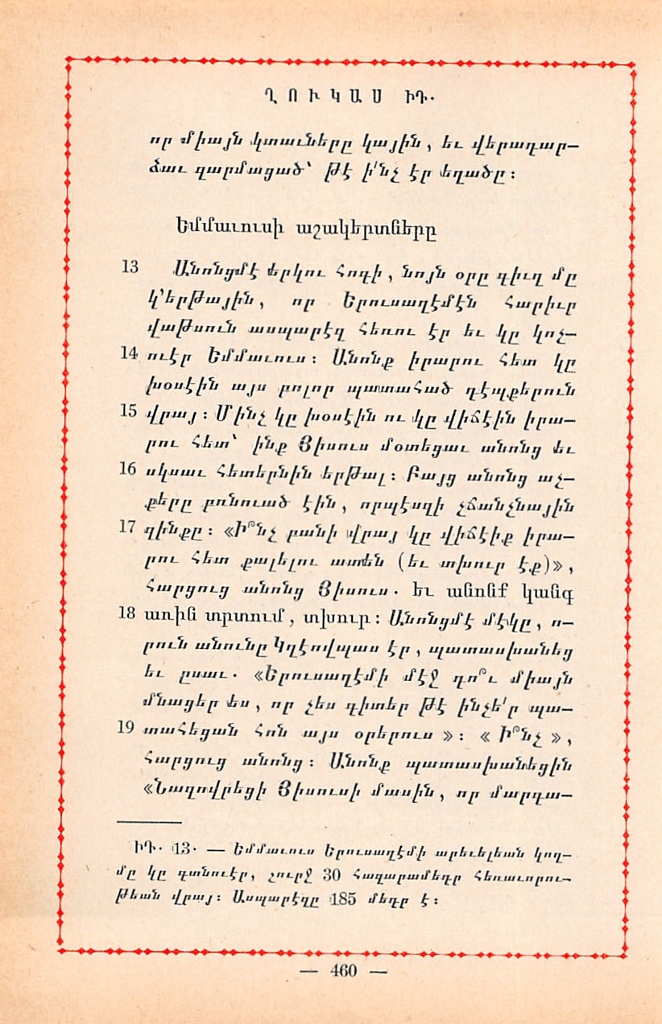 ՂՈՒԿԱՍ ԻԴ.
որ միայն կտաւները կային, եւ վերադար–
ձաւ զարմացած՝ թէ ի՛նչ էր եղածը։
Եմմաւուսի աշակերտները
13 Անոնցմէ երկու հոգի, նոյն օրը գիւղ մը
կ՚երթային, որ Երուսաղէմէն հարիւր
վաթսուն ասպարէզ հեռու էր եւ կը կոչ–
14 ուէր Եմմաւուս։ Անոնք իրարու հետ կը
խօսէին այս բոլոր պատահած դէպքերուն
15 վրայ։ Մինչ կը խօսէին ու կը վիճէին իրա–
րու հետ՝ ինք Յիսուս մօտեցաւ անոնց եւ
16 սկսաւ հետերնին երթալ։ Բայց անոնց աչ–
քերը բռնուած էին, որպէսզի չճանչնային
17 զինքը։ «Ի՞նչ բանի վրայ կը վիճէիք իրա–
րու հետ քալելու ատեն (եւ տխուր էք)»,
հարցուց անոնց Յիսուս. եւ անոնք կանգ
18 առին տրտում, տխուր։ Անոնցմէ մէկը, ո–
րուն անունը Կղէովպաս էր, պատասխանեց
եւ ըսաւ. «Երուսաղէմի մէջ դո՞ւ միայն
մնացեր ես, որ չես գիտեր թէ ինչե՛ր պա–
19 տահեցան հոն այս օրերուս»։ «Ի՞նչ»,
հարցուց անոնց։ Անոնք պատասխանեցին
«Նազովրեցի Յիսուսի մասին, որ մարդա–
ԻԴ. 13. — Եմմաւուս Երուսաղէմի արեւելեան կող–
մը կը գտնուէր, շուրջ 30 հազարամեդր հեռաւորու–
թեան վրայ։ Ասպարէզը 185 մեդր է։
— 460 —